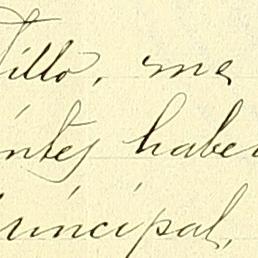 tillo, me
ntes haber
rincipal,